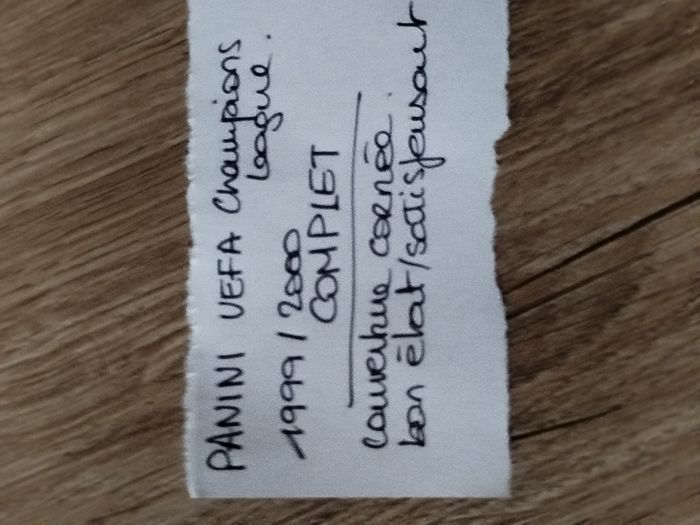 PANINI UEFA Champions
League.
1999/2000
COMPLET
couverture cornée.
bon état/satisfaisant